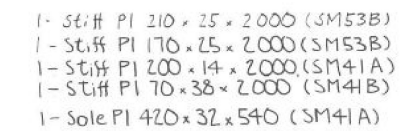 1- Stiff Pl 210 x 25 x 2000 (SM53B)
1- Stiff Pl 170 x 25 x 2000 (SM53B)
1- Stiff Pl 200 x 14 x 2000. (SM41A)
1- Stiff Pl 70 x 38 x 2000 (SM41B)
1- Sole Pl 420 x 32 x 540 (SM41A)